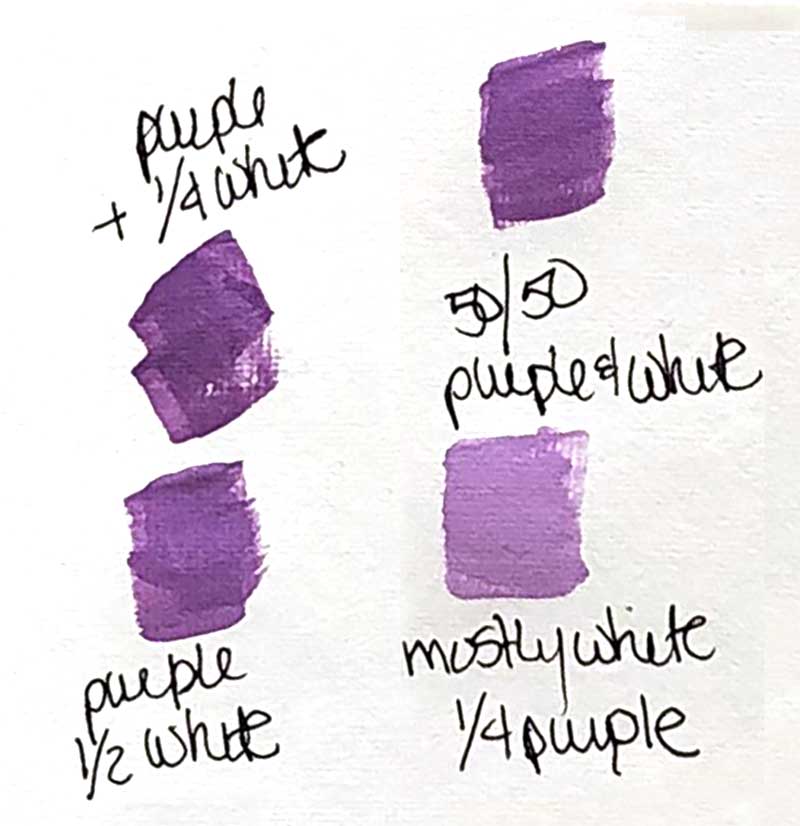 purple
+ 1/4 white
50/50
purple & white
purple
1/2 white
mostly white
1/4 purple